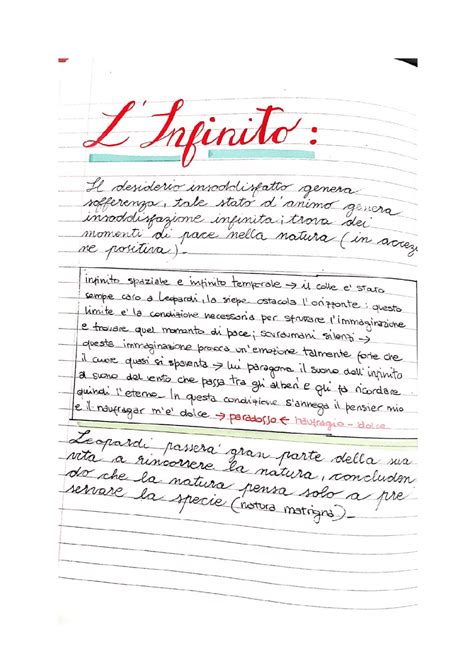 L'Infinito:
Il desiderio insoddisfatto genera
sofferenza, tale stato d'animo genera
insoddisfazione infinita; trova dei
momenti di pace nella natura (in accezio
ne positiva).
infinito spaziale e infinito temporale → il colle e' stato
sempre caro a Leopardi, la siepe ostacola l'orizzonte: questo
limite e' la condizione necessaria per sfruttare l'immaginazione
e trovare quel momento di pace; sovraumani silenzi →
questa immaginazione provoca un'emozione talmente forte che
il cuore quasi si spaventa → lui paragona il suono dell'infinito
a suono del vento che passa tra gli alberi e gli fa ricordare
quindi l'eterno. In questa condizione s'annega il pensier mio
e il naufragar m'e' dolce → paradosso ← naufragio - dolce
Leopardi passera' gran parte della sua
vita a rincorrere la natura, concluden
do che la natura pensa solo a pre
servare la specie (natura matrigna).